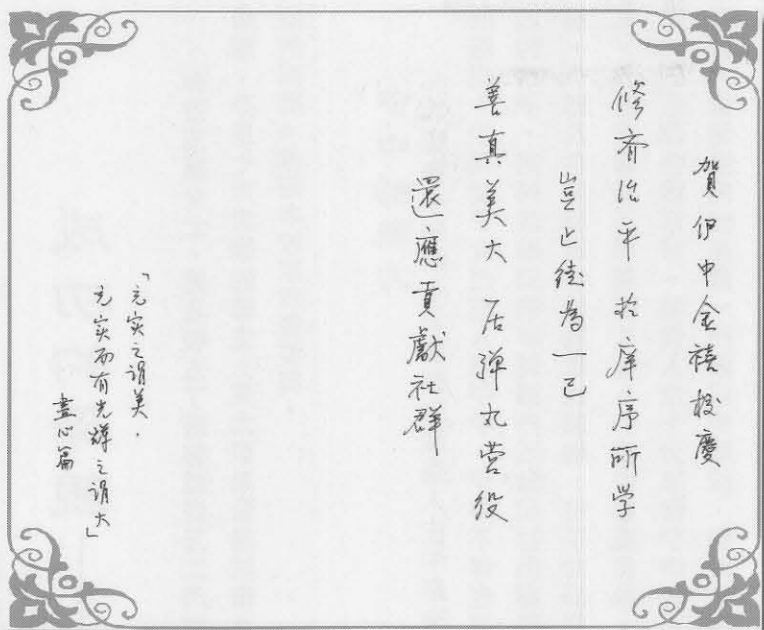 賀伊中金禧校慶
修齊治平 於庠序所学
豈止徒為一己
善真美大 居弹丸营役
還應貢獻社群
「充实之谓美，
充实而有光辉之谓大」
盡心篇